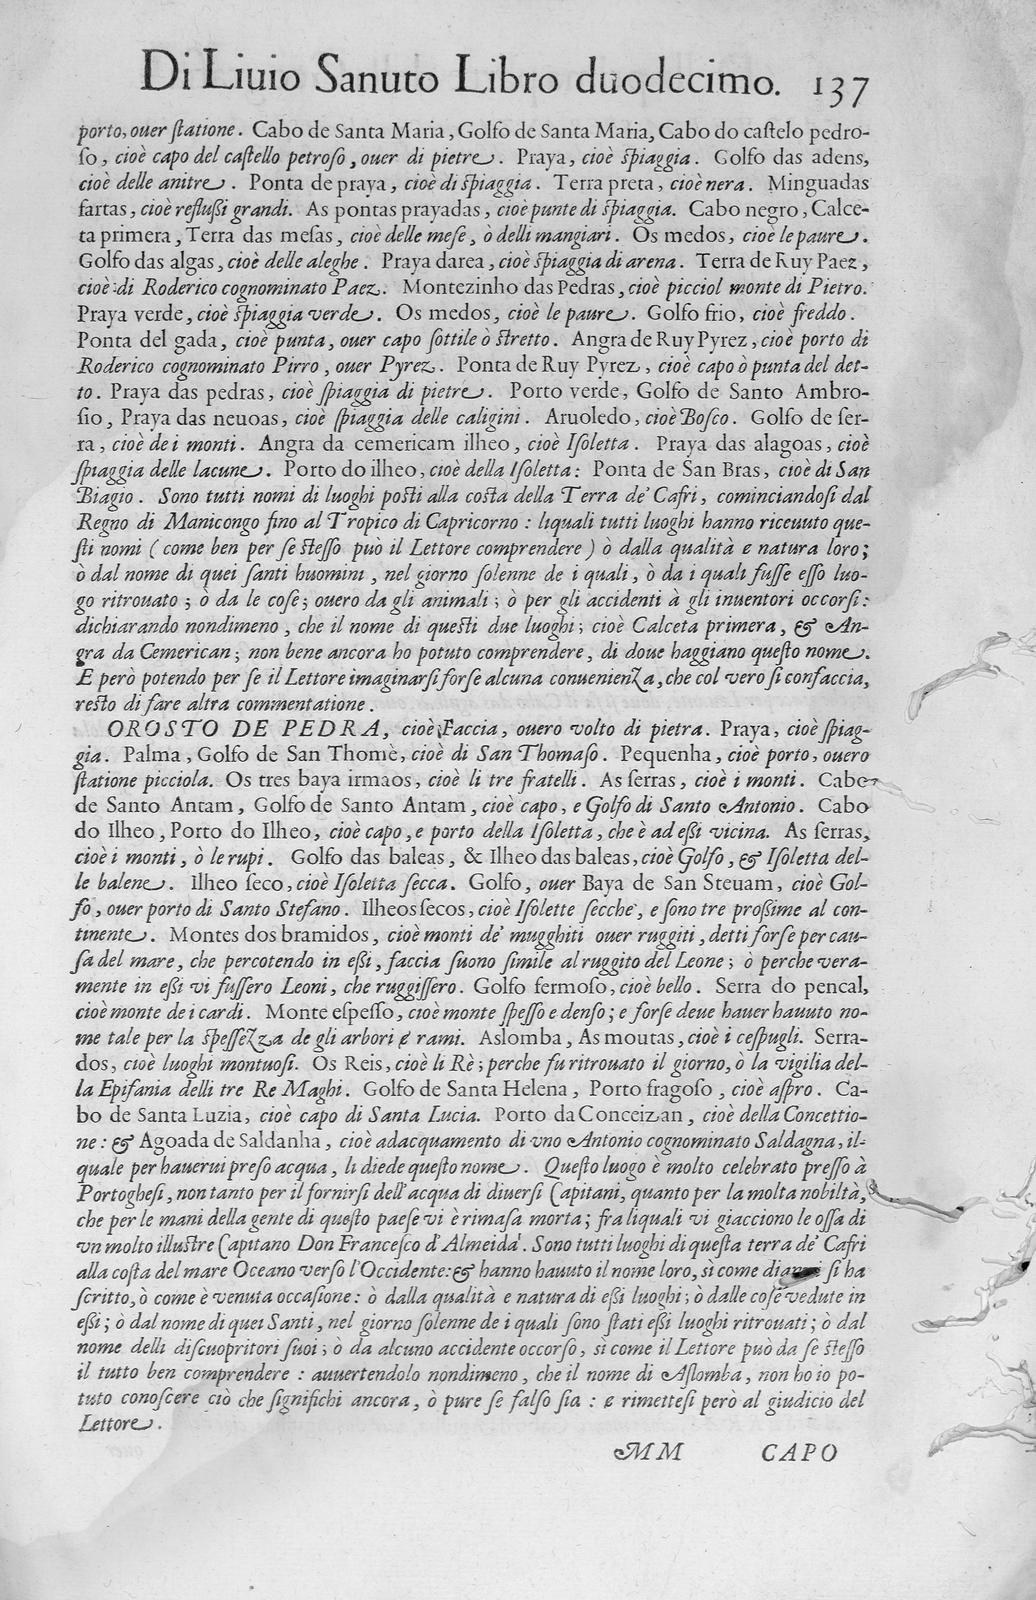 Di Liuio Sanuto Libro duodecimo. 137
porto, ouer ſtatione. Cabo de Santa Maria, Golfo de Santa Maria, Cabo do caſtelo pedro-
ſo, cioè capo del caſtello petroſo, ouer di pietre. Praya, cioè ſpiaggia. Golfo das adens,
cioè delle anitre. Ponta de praya, cioè di ſpiaggia. Terra preta, cioè nera. Minguadas
fartas, cioè refluſſi grandi. As pontas prayadas, cioè punte di ſpiaggia. Cabo negro, Calce-
ta primera, Terra das meſas, cioè delle meſe, ò delli mangiari. Os medos, cioè le paure.
Golfo das algas, cioè delle aleghe. Praya darea, cioè ſpiaggia di arena. Terra de Ruy Paez,
cioè di Roderico cognominato Paez. Montezinho das Pedras, cioè picciol monte di Pietro.
Praya verde, cioè ſpiaggia verde. Os medos, cioè le paure. Golfo frio, cioè freddo.
Ponta del gada, cioè punta, ouer capo ſottile ò ſtretto. Angra de Ruy Pyrez, cioè porto di
Roderico cognominato Pirro, ouer Pyrez. Ponta de Ruy Pyrez, cioè capo ò punta del det-
to. Praya das pedras, cioè ſpiaggia di pietre. Porto verde, Golfo de Santo Ambro-
ſio, Praya das neuoas, cioè ſpiaggia delle caligini. Aruoledo, cioè Boſco. Golfo de ſer-
ra, cioè de i monti. Angra da cemericam ilheo, cioè Iſoletta. Praya das alagoas, cioè
ſpiaggia delle lacune. Porto do ilheo, cioè della Iſoletta: Ponta de San Bras, cioè di San
Biagio. Sono tutti nomi di luoghi poſti alla coſta della Terra de' Cafri, cominciandoſi dal
Regno di Manicongo fino al Tropico di Capricorno: liquali tutti luoghi hanno riceuuto que-
ſti nomi (come ben per ſe ſteſſo può il Lettore comprendere) ò dalla qualità e natura loro;
ò dal nome di quei ſanti huomini, nel giorno ſolenne de i quali, ò da i quali fuſſe eſſo luo-
go ritrouato; ò da le coſe; ouero da gli animali; ò per gli accidenti à gli inuentori occorſi:
dichiarando nondimeno, che il nome di queſti due luoghi; cioè Calceta primera, & An-
gra da Cemerican; non bene ancora ho potuto comprendere, di doue haggiano queſto nome.
E però potendo per ſe il Lettore imaginarſi forſe alcuna conuenienza, che col vero ſi confaccia,
reſto di fare altra commentatione.
OROSTO DE PEDRA, cioè Faccia, ouero volto di pietra. Praya, cioè ſpiag-
gia. Palma, Golfo de San Thomè, cioè di San Thomaſo. Pequenha, cioè porto, ouero
ſtatione picciola. Os tres baya irmaos, cioè li tre fratelli. As ſerras, cioè i monti. Cabo
de Santo Antam, Golfo de Santo Antam, cioè capo, e Golfo di Santo Antonio. Cabo
do Ilheo, Porto do Ilheo, cioè capo, e porto della Iſoletta, che è ad eſſi vicina. As ſerras,
cioè i monti, ò le rupi. Golfo das baleas, & Ilheo das baleas, cioè Golfo, & Iſoletta del-
le balene. Ilheo ſeco, cioè Iſoletta ſecca. Golfo, ouer Baya de San Steuam, cioè Gol-
fo, ouer porto di Santo Stefano. Ilheos ſecos, cioè Iſolette ſecche, e ſono tre proſſime al con-
tinente. Montes dos bramidos, cioè monti de' mugghiti ouer ruggiti, detti forſe per cau-
ſa del mare, che percotendo in eſſi, faccia ſuono ſimile al ruggito del Leone; ò perche vera-
mente in eſſi vi fuſſero Leoni, che ruggiſſero. Golfo fermoſo, cioè bello. Serra do pencal,
cioè monte de i cardi. Monte eſpeſſo, cioè monte ſpeſſo e denſo; e forſe deue hauer hauuto no-
me tale per la ſpeſſezza de gli arbori e rami. Aslomba, As moutas, cioè i ceſpugli. Serra-
dos, cioè luoghi montuoſi. Os Reis, cioè li Rè; perche fu ritrouato il giorno, ò la vigilia del-
la Epifania delli tre Re Maghi. Golfo de Santa Helena, Porto fragoſo, cioè aſpro. Ca-
bo de Santa Luzia, cioè capo di Santa Lucia. Porto da Conceizan, cioè della Concettio-
ne: & Agoada de Saldanha, cioè adacquamento di vno Antonio cognominato Saldagna, il-
quale per hauerui preſo acqua, li diede queſto nome. Queſto luogo è molto celebrato preſſo à
Portogheſi, non tanto per il fornirſi dell'acqua di diuerſi Capitani, quanto per la molta nobiltà,
che per le mani della gente di queſto paeſe vi è rimaſa morta; fra liquali vi giacciono le oſſa di
vn molto illuſtre Capitano Don Franceſco d'Almeida. Sono tutti luoghi di queſta terra de' Cafri
alla coſta del mare Oceano verſo l'Occidente: & hanno hauuto il nome loro, sì come dianzi ſi ha
ſcritto, ò come è venuta occaſione: ò dalla qualità e natura di eſſi luoghi; ò dalle coſe vedute in
eſſi; ò dal nome di quei Santi, nel giorno ſolenne de i quali ſono ſtati eſſi luoghi ritrouati; ò dal
nome delli diſcuopritori ſuoi; ò da alcuno accidente occorſo, sì come il Lettore può da ſe ſteſſo
il tutto ben comprendere: auuertendolo nondimeno, che il nome di Aſlomba, non ho io po-
tuto conoſcere ciò che ſignifichi ancora, ò pure ſe falſo ſia: e rimetteſi però al giudicio del
Lettore.
MM CAPO